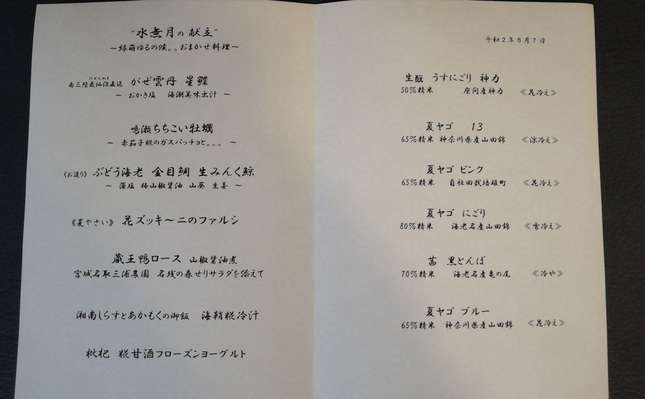 "水無月の献立"
～緑萌ゆるの候。。おまかせ料理～
南三陸直送 がぜ雲丹 星鰈
～ おかき塩 海潮美味出汁 ～
鳴瀬ちちこい牡蠣
～ 赤茄子のガスパッチョと。。。 ～
《お造り》 ぶどう海老 金目鯛 生みんく鯨
～ 藻塩 山椒醤油 山葵 生姜 ～
《夏やさい》 花ズッキーニのファルシ
蔵王鴨ロース 山椒醤油煮
宮城名取三浦農園 名残の春せりサラダを添えて
湘南しらすとあかもくの御飯 海鞘糀冷汁
枇杷 糀甘酒フローズンヨーグルト
令和2年6月7日
生酛 うすにごり 神力
50%精米 座間産神力 《花冷え》
夏ヤゴ 13
65%精米 神奈川県産山田錦 《涼冷え》
夏ヤゴ ピンク
65%精米 自社田栽培雄町 《花冷え》
夏ヤゴ にごり
80%精米 海老名産山田錦 《雪冷え》
茜 黒とんぼ
70%精米 海老名産亀の尾 《冷や》
夏ヤゴ ブルー
65%精米 神奈川県産山田錦 《花冷え》